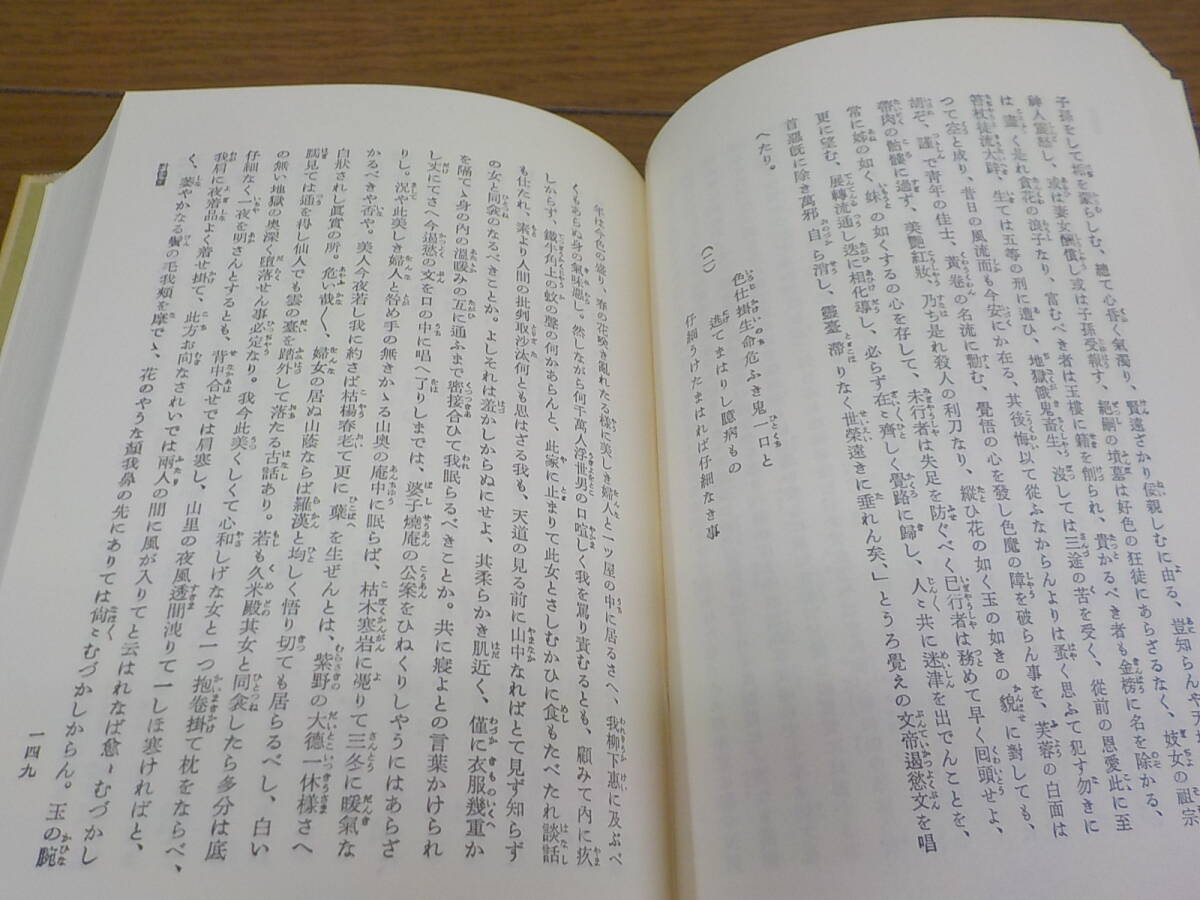 子孫をして禍を蒙らしむ、總て心昏く氣濁り、賢遠ざかり佞親しむに由る、豈知らんや天地
神人震怒し、或は妻女酬償し或は子孫受報す、絕嗣の墳墓は好色の狂徒にあらざるなく、妓女の祖宗
は盡く是れ貪花の浪子なり、富むべき者は玉樓に籍を削られ、貴かるべき者も金榜に名を除かる、
笞杖徒流大辟、生ては五等の刑に遭ひ、地獄餓鬼畜生、沒しては三途の苦を受く、從前の恩愛此に至
つて空と成り、昔日の風流而も今安にか在る、其後悔以て從ふなからんよりは蚤く思ふて犯す勿きに
胡ぞ、謹で青年の佳士、黃卷の名流に勸む、覺悟の心を發し色魔の障を破らん事を、芙蓉の白面は
帶肉の骷髏に過ず、美艷紅妝、乃ち是れ殺人の利刀なり、縱ひ花の如く玉の如きの貌に對しても、
常に姊の如く妹の如くするの心を存して、未行者は失足を防ぐべく已行者は務めて早く回頭せよ、
更に望む、展轉流通し迭に相化導し、必らず在々齊しく覺路に歸し、人々共に迷津を出でんことを、
首惡既に除き萬邪自ら消し、靈臺滯りなく世榮遠きに垂れん矣、」とうろ覺えの文帝遏慾文を唱
へたり。
(二)
色仕掛生命危ふき鬼一口と
逃てまはりし臆病もの
仔細うけたまはれば仔細なき事
年は今色の盛り、春の花咲き亂れたる樣に美しき婦人と一ツ屋の中に居るさへ、我柳下惠に及ぶべ
くもあらぬ身の氣味惡し。然しながら何千萬人浮世男の口喧しく我を罵り責むるとも、顧みて內に疚
しからず、鐵牛角上の蚊の聲の何かあらんと、此家に止まりて此女とさしむかひに食もたべたれ談話
も仕たれ、素より人間の批判取沙汰何とも思はざる我も、天道の見る前に山中なればとて見ず知らず
の女と同衾のなるべきことか。よしそれは羞かしからぬにせよ、其柔らかき肌近く、僅に衣服幾重か
を隔てゝ身の內の溫暖みの互に通ふまで密接合ひて我眠らるべきことか。共に寢よとの言葉かけられ
し丈にてさへ今遏慾の文を口の中に唱へ了りしまでは、婆子燒庵の公案をひねくりしやうにはあらざ
りし。況や此美しき婦人と咎め手の無きかゝる山奧の庵中に眠らば、枯木寒岩に凭りて三冬に暖氣な
かるべきや否や。美人今夜若し我に約さば枯楊春老て更に葉を生ぜんとは、紫野の大德一休樣さへ
白狀されし眞實の所。危い哉〱、婦女の居ぬ山蔭ならば羅漢と均しく悟り切ても居らるべし、白い
脛見ては通を得し仙人でも雲の臺を踏外して落たる古話あり。若も久米殿其女と同衾したら多分は底
の無い地獄の奧深く墮落せん事必定なり。我今此美くしくて心和しげな女と一つ抱卷掛て枕をならべ、
仔細なく一夜を明さんとするとも、背中合せでは肩寒し、山里の夜風透間洩りて一しほ寒ければと、
我肩に夜着品よく着せ掛て、此方お向なされいでは兩人の間に風が入りてと云はれなば愈〻むづかし
く、萎やかなる鬢の毛我頰を摩でゝ、花のやうな顏我鼻の先にありては尙々むづかしからん。玉の腕
對髑髏
一四九